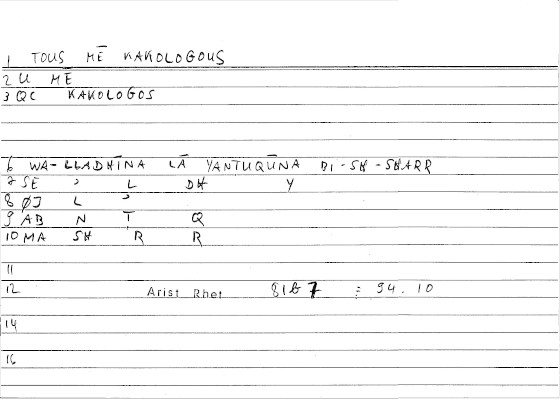 1 TOUS MĒ KAKOLOGOUS
2 U MĒ
3 QC KAKOLOGOS
6 WA-LLADHĪNA LĀ YANTUQŪNA BI-SH-SHARR
7 SE ʾ L DH Y
8 ØJ L ʾ
9 AB N T Q
10 MA SH R R
11
12 Arist Rhet 81b7 : 94.10
14
16